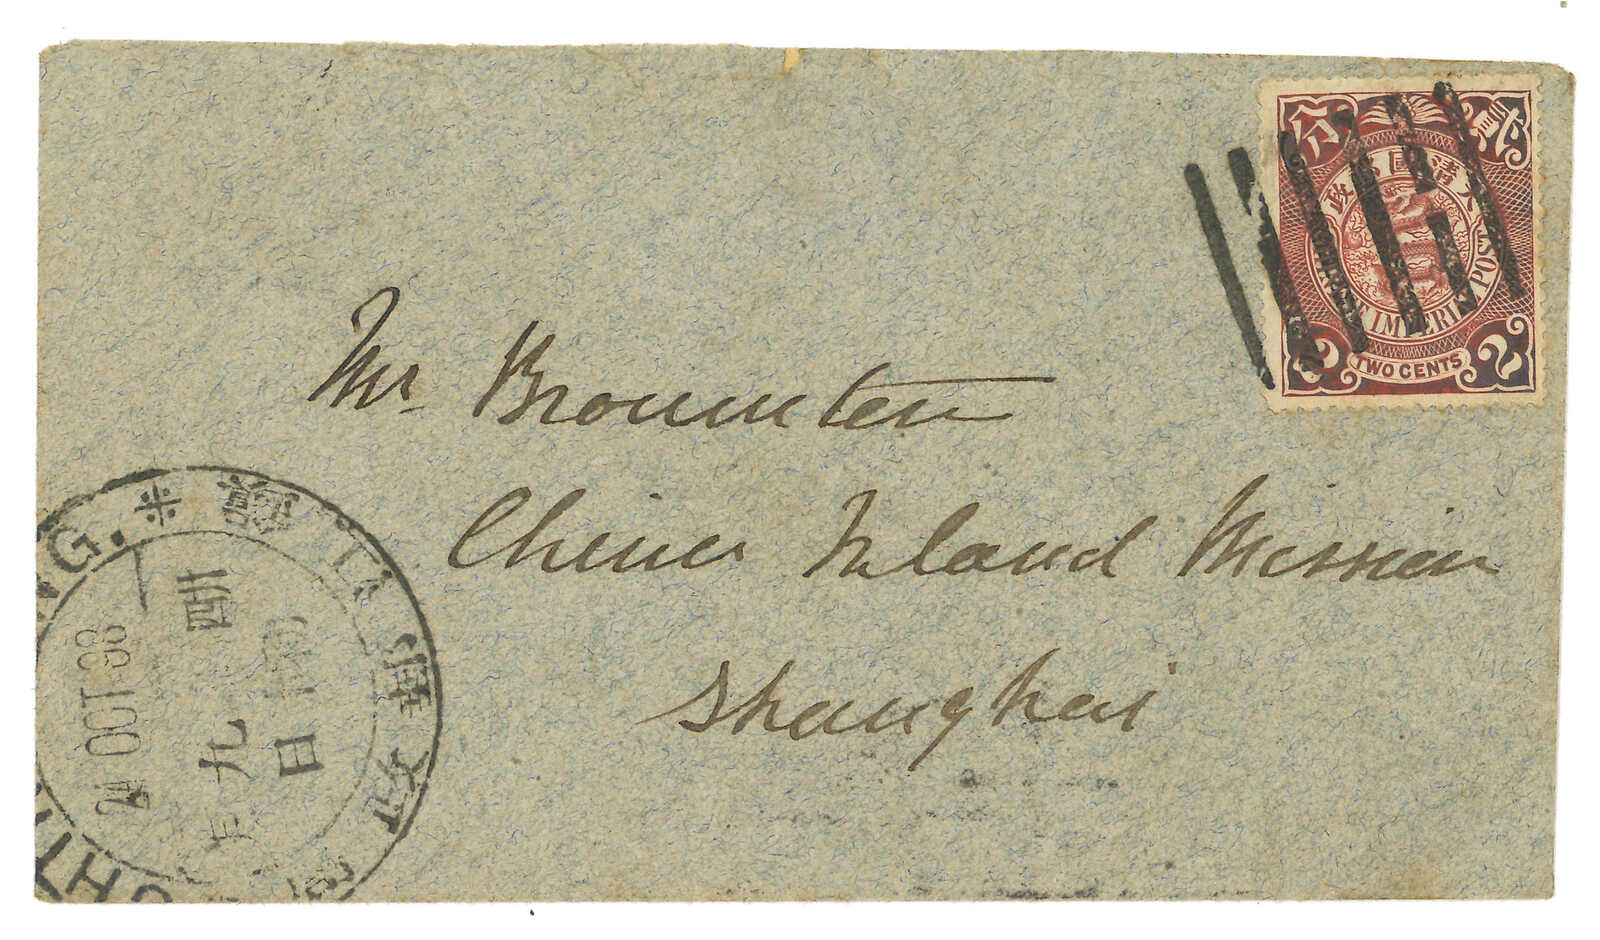 貳分
大清國郵政
IMPERIAL POST
2 TWO CENTS 2
Mr Brounton
China Inland Mission
Shanghai
鎮江郵政局
NG.
24 OCT 98
九月
日